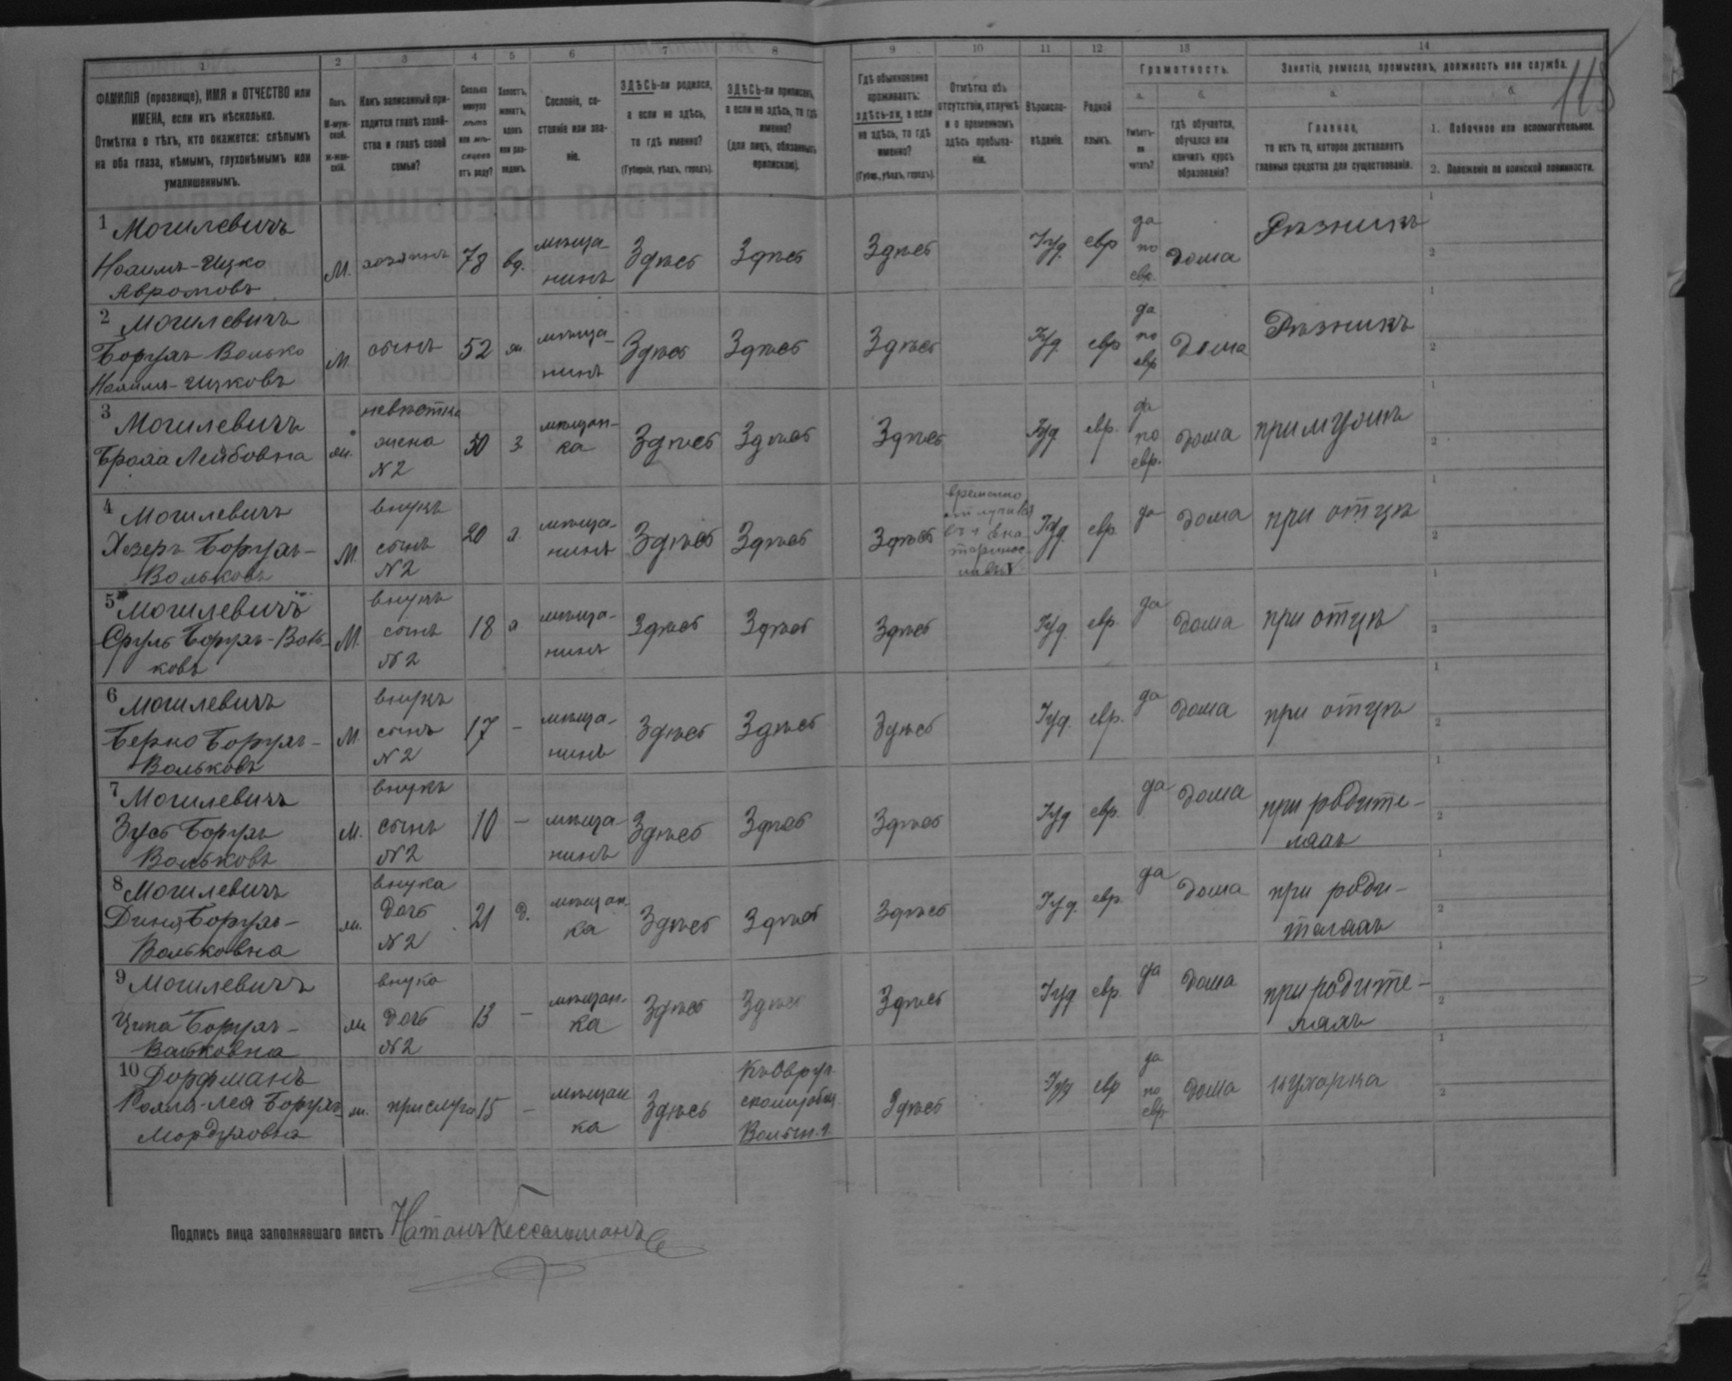 115
1 2 3 4 5 6 7 8 9 10 11 12 13 14
ФАМИЛІЯ (прозвище), ИМЯ и ОТЧЕСТВО или
ИМЕНА, если ихъ нѣсколько.
Отмѣтка о тѣхъ, кто окажется: слѣпымъ
на оба глаза, нѣмымъ, глухонѣмымъ или
умалишеннымъ.
Полъ.
М-муж-
ской.
ж-жен-
скій.
Какъ записанный при-
ходится главѣ хозяй-
ства и главѣ своей
семьи?
Сколько
минуло
лѣтъ
или мѣ-
сяцевъ
отъ роду?
Холостъ,
женатъ,
вдовъ
или раз-
веденъ.
Сословіе, со-
стояніе или зва-
ніе.
ЗДѢСЬ-ли родился,
а если не здѣсь,
то гдѣ именно?
(Губернія, уѣздъ, городъ).
ЗДѢСЬ-ли приписанъ,
а если не здѣсь, то гдѣ
именно?
(для лицъ, обязанныхъ
припискою).
Гдѣ обыкновенно
проживаетъ:
здѣсь-ли, а если
не здѣсь, то гдѣ
именно?
(Губер., уѣздъ, городъ).
Отмѣтка объ
отсутствіи, отлучкѣ
и о временномъ
здѣсь пребыва-
ніи.
Вѣроиспо-
вѣданіе.
Родной
языкъ.
Грамотность.
а.
Умѣетъ-
ли
читать?
б.
гдѣ обучается,
обучался или
кончилъ курсъ
образованія?
Занятіе, ремесло, промыселъ, должность или служба.
а.
Главное,
то есть то, которое доставляетъ
главныя средства для существованія.
б.
1. Побочное или вспомогательное.
2. Положеніе по воинской повинности.
1 Могилевичъ
Нахимъ-Ицко
Авромовъ
М. хозяинъ 78 вд. мѣща-
нинъ Здѣсь Здѣсь Здѣсь Іуд. евр да
по
евр. дома Рѣзникъ
2 Могилевичъ
Борухъ Волько
Нахимъ-Ицковъ
М. сынъ 52 ж. мѣща-
нинъ Здѣсь Здѣсь Здѣсь Іуд. евр да
по
евр дома Рѣзникъ
3 Могилевичъ
Броха Лейбовна
ж. невѣстка
жена
№2 50 з. мѣщан-
ка Здѣсь Здѣсь Здѣсь Іуд евр. да
по
евр. дома при мужѣ
4 Могилевичъ
Хезеръ Борухъ-
Вольковъ
М. внукъ
сынъ
№2 20 х. мѣща-
нинъ Здѣсь Здѣсь Здѣсь временно
Іуд евр. да дома при отцѣ
5 Могилевичъ
Сруль Борухъ-Воль-
ковъ
М. внукъ
сынъ
№2 18 х мѣща-
нинъ Здѣсь Здѣсь Здѣсь Іуд. евр. да дома при отцѣ
6 Могилевичъ
Берко Борухъ-
Вольковъ
М. внукъ
сынъ
№2 17 — мѣща-
нинъ Здѣсь Здѣсь Здѣсь Іуд. евр. да дома при отцѣ
7 Могилевичъ
Зусь Борухъ
Вольковъ
М. внукъ
сынъ
№2 10 — мѣща-
нинъ Здѣсь Здѣсь Здѣсь Іуд евр. да дома при родите-
ляхъ
8 Могилевичъ
Диня Борухъ-
Вольковна
ж. внука
дочь
№2 21 д. мѣщан
ка Здѣсь Здѣсь Здѣсь Іуд. евр. да дома при роди-
теляхъ
9 Могилевичъ
Ципа Борухъ-
Вольковна
ж внука
дочь
№2 13 — мѣщан-
ка Здѣсь Здѣсь Здѣсь Іуд евр. да дома при родите-
ляхъ
10 Дорфманъ
Рохля-Лея Борухъ
Мордуховна
ж. прислуга 15 — мѣщан
ка Здѣсь Къ Овруч.
Волын. г. Здѣсь Іуд евр да
по
евр. дома кухарка
Подпись лица заполнявшаго листъ Натанъ Кессельманъ